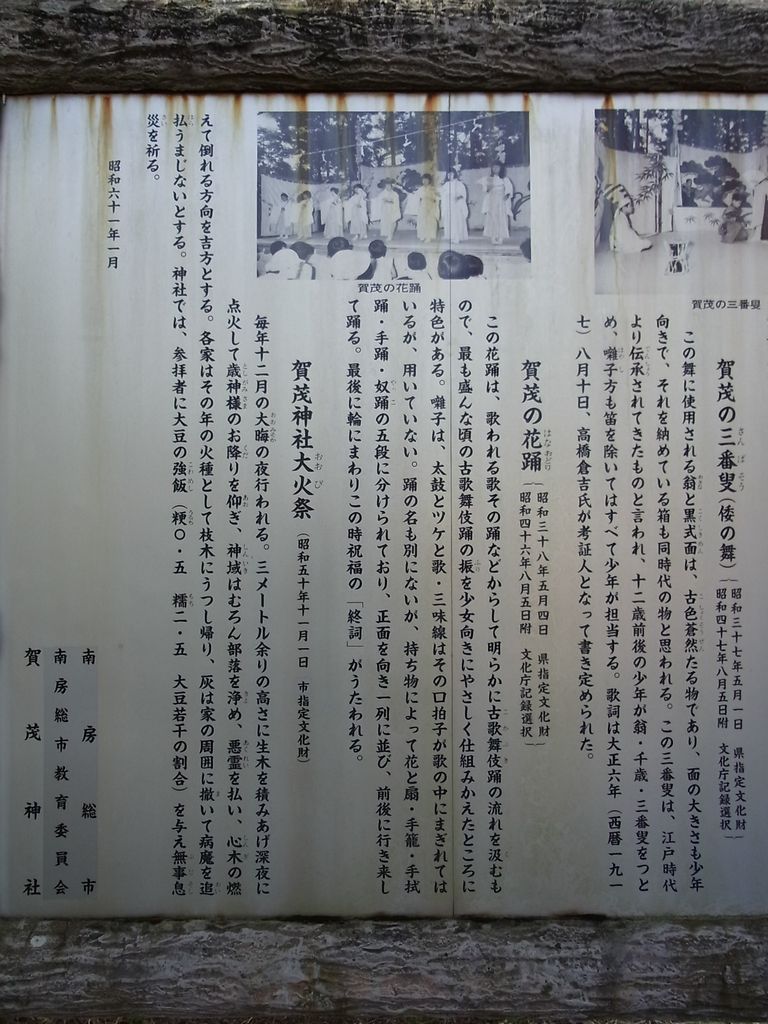 賀茂の三番叟
賀茂の三番叟(倭の舞)
昭和三十七年五月一日 県指定文化財
昭和四十七年八月五日附 文化庁記録選択
この舞に使用される翁と黒式面は、古色蒼然たる物であり、面の大きさも少年
向きで、それを納めている箱も同時代の物と思われる。この三番叟は、江戸時代
より伝承されてきたものと言われ、十二歳前後の少年が翁・千歳・三番叟をつと
め、囃子方も笛を除いてはすべて少年が担当する。歌詞は大正六年(西暦一九一
七)八月十日、高橋倉吉氏が考証人となって書き定められた。
賀茂の花踊
賀茂の花踊
昭和三十八年五月四日 県指定文化財
昭和四十六年八月五日附 文化庁記録選択
この花踊は、歌われる歌その踊などからして明らかに古歌舞伎踊の流れを汲むも
ので、最も盛んな頃の古歌舞伎踊の振を少女向きにやさしく仕組みかえたところに
特色がある。囃子は、太鼓とツケと歌・三味線はその口拍子が歌の中にまぎれては
いるが、用いていない。踊の名も別にないが、持ち物によって花と扇・手籠・手拭
踊・手踊・奴踊の五段に分けられており、正面を向き一列に並び、前後に行き来し
て踊る。最後に輪にまわりこの時祝福の「終詞」がうたわれる。
賀茂神社大火祭(昭和五十年十一月一日 市指定文化財)
毎年十二月の大晦の夜行われる。三メートル余りの高さに生木を積みあげ深夜に
点火して歳神様のお降りを仰ぎ、神域はむろん部落を浄め、悪霊を払い、心木の燃
えて倒れる方向を吉方とする。各家はその年の火種として枝木にうつし帰り、灰は家の周囲に撒いて病魔を追
払うまじないとする。神社では、参拝者に大豆の強飯(粳〇・五 糯二・五 大豆若干の割合)を与え無事息
災を祈る。
昭和六十一年一月
南房総市
南房総市教育委員会
賀茂神社